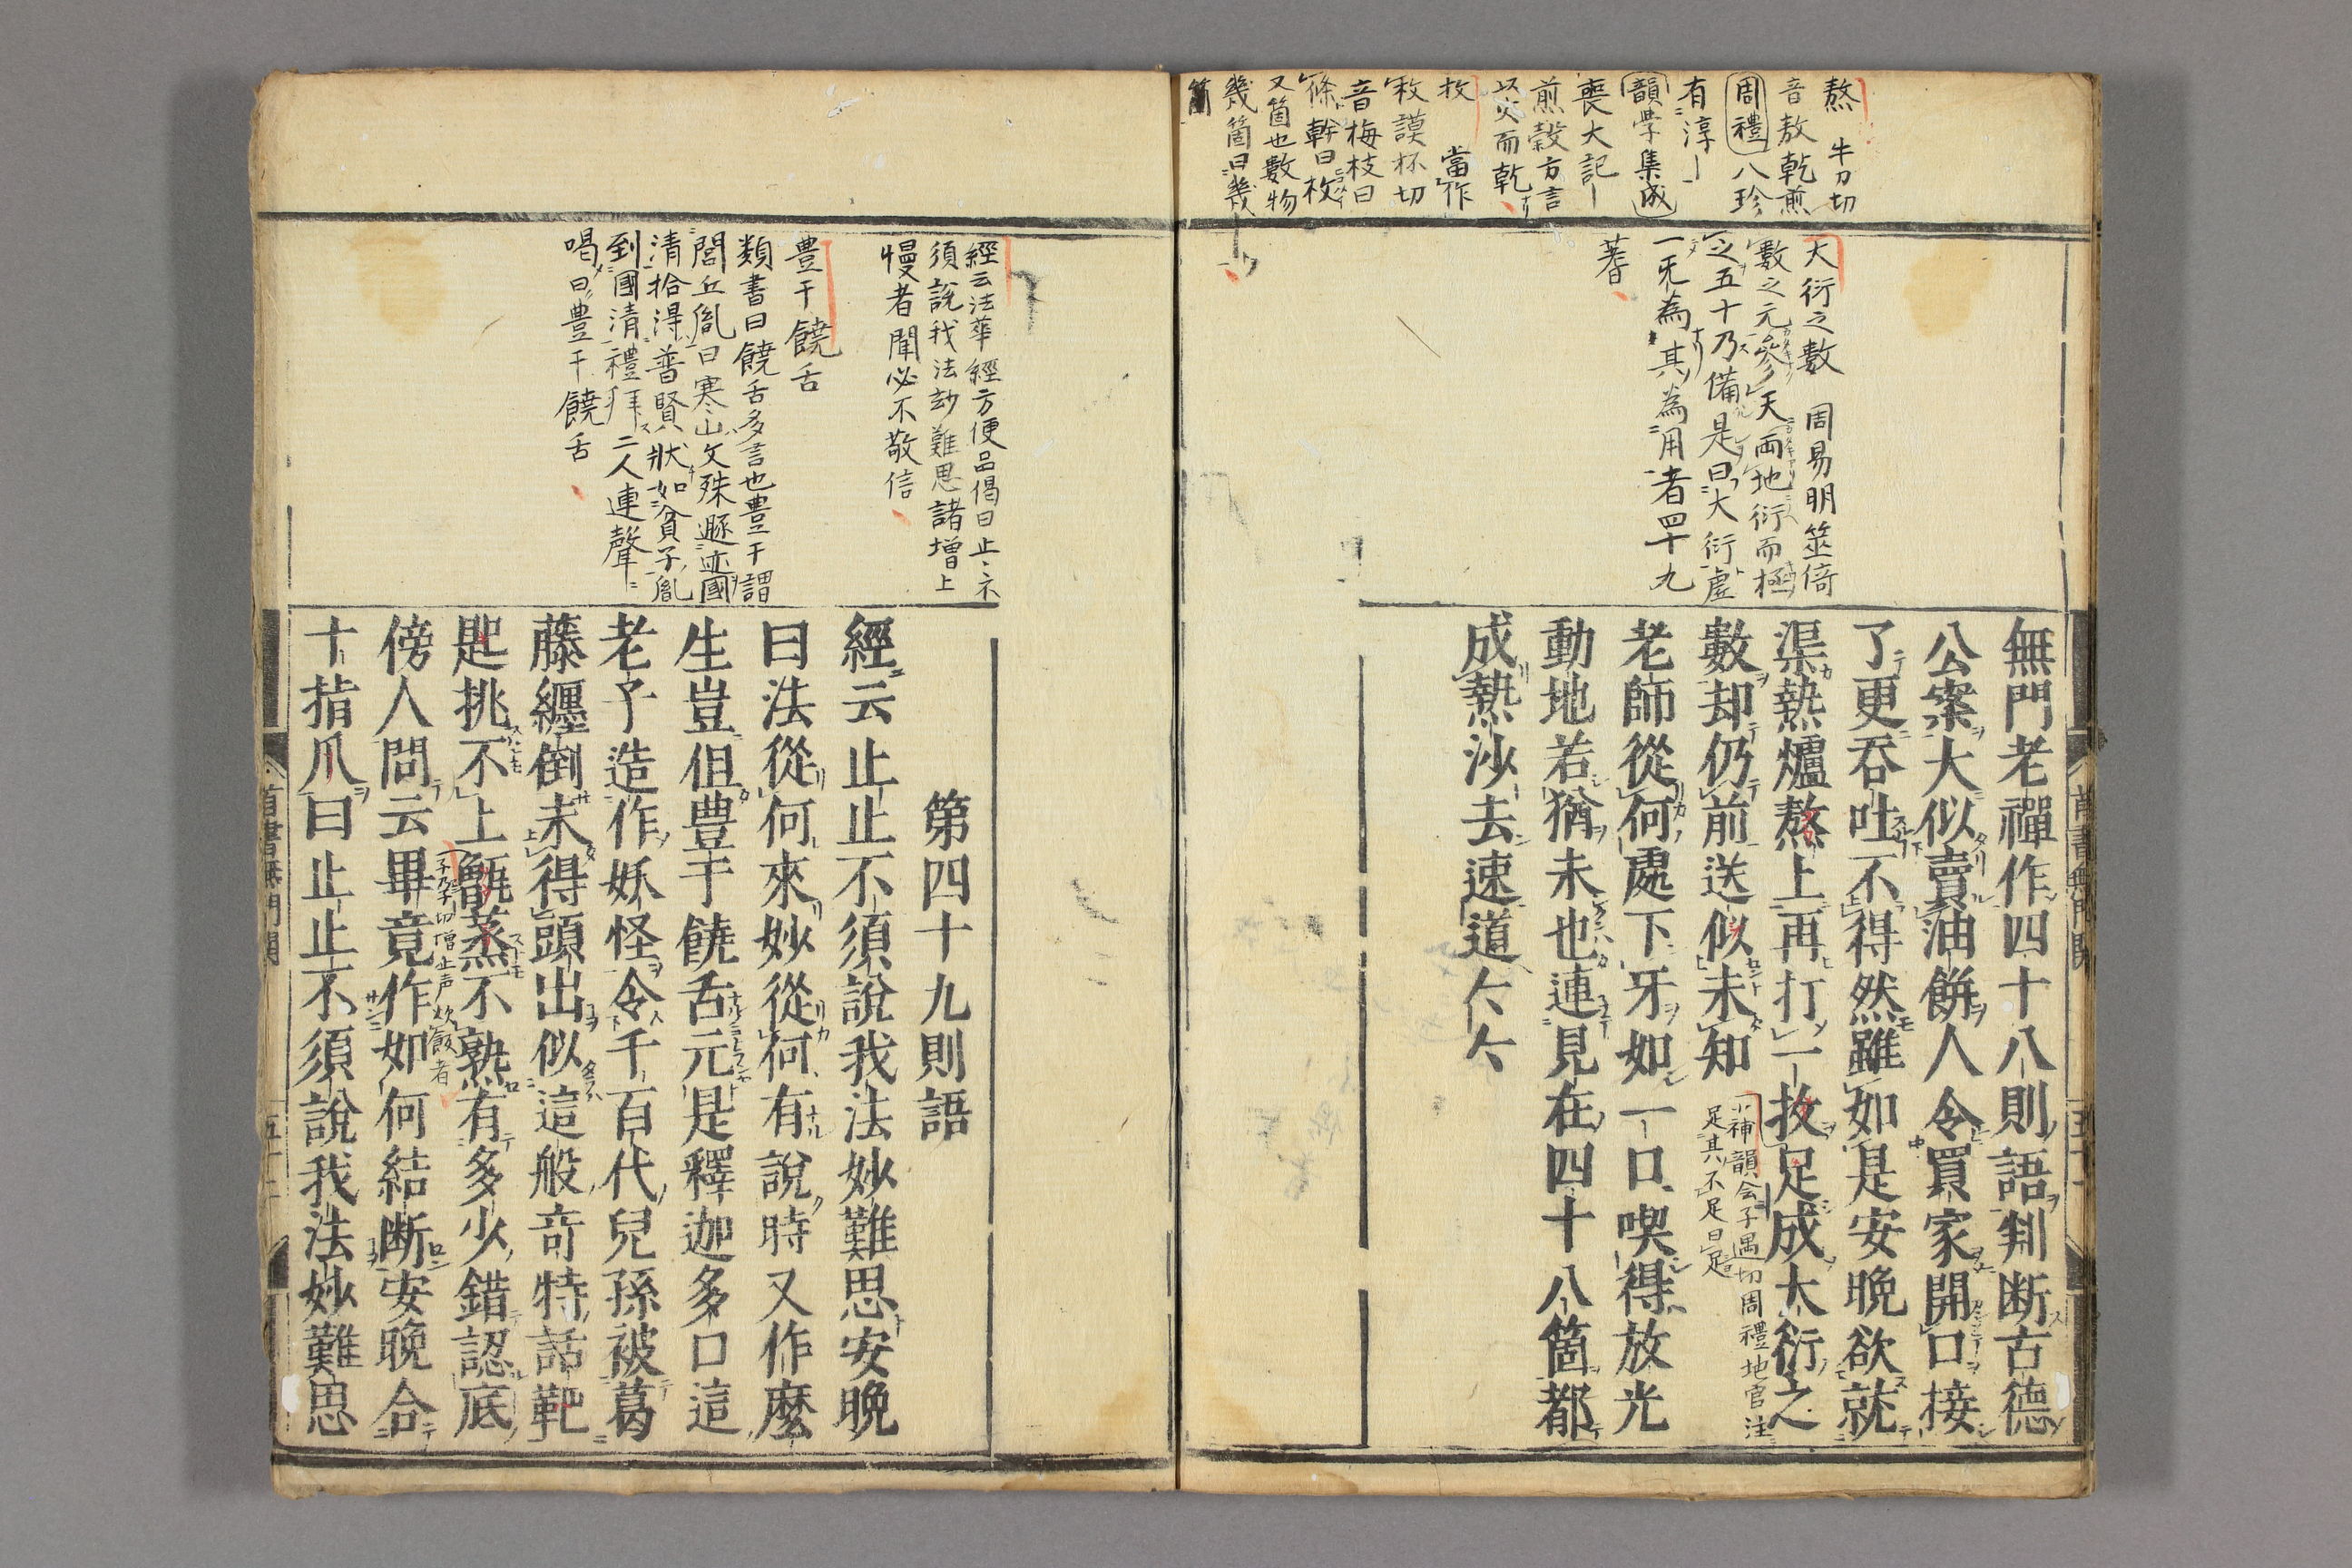 熬　牛刀切
音敖乾煎
周禮八珍
有淳｜
韻學集成
喪大記｜
煎穀方言
以火而乾ナリ
投　當作
枚謨杯切
音梅枝曰
條幹曰枚
又箇也數物
幾箇曰幾
箇
大衍之數　周易明筮倚
數之元參天兩地衍而極
之五十乃備是曰大衍虛
一旡為其為用者四十九
蓍
無門老禪作四十八則語判断古德
公案大似賣油餅人令買家開口接
了更吞吐不得然雖如是安晚欲就
渠熱爐熬上再打一枚足成大衍之
補韻会子遇切周禮地官注
足其不足曰足
數却仍前送似未知
老師從何處下牙如一口喫得放光
動地若猶未也連見在四十八箇都
成熱沙去速道〻〻
首書無門關
經云法華經方便品偈曰止〻不
須說我法玅難思諸增上
慢者聞必不敬信
豊干饒舌
類書曰饒舌多言也豊干謂
閭丘胤曰寒山文殊遯迹國
清拾得普賢狀如貧子胤
到國清禮拜二人連聲
喝曰豊干饒舌
第四十九則語
經云止止不須說我法妙難思安晚
曰法從何來妙從何有說時又作麼
生豈但豊干饒舌元是釋迦多口這
老子造作妖怪令千百代兒孫被葛
藤纏倒未得頭出似這般奇特話靶
匙挑不上甑蒸不熟有多少錯認底
子孕切僧去声炊飯者
傍人問云畢竟作如何結断安晚合
十指爪曰止止不須說我法妙難思
首書無門關
五十二